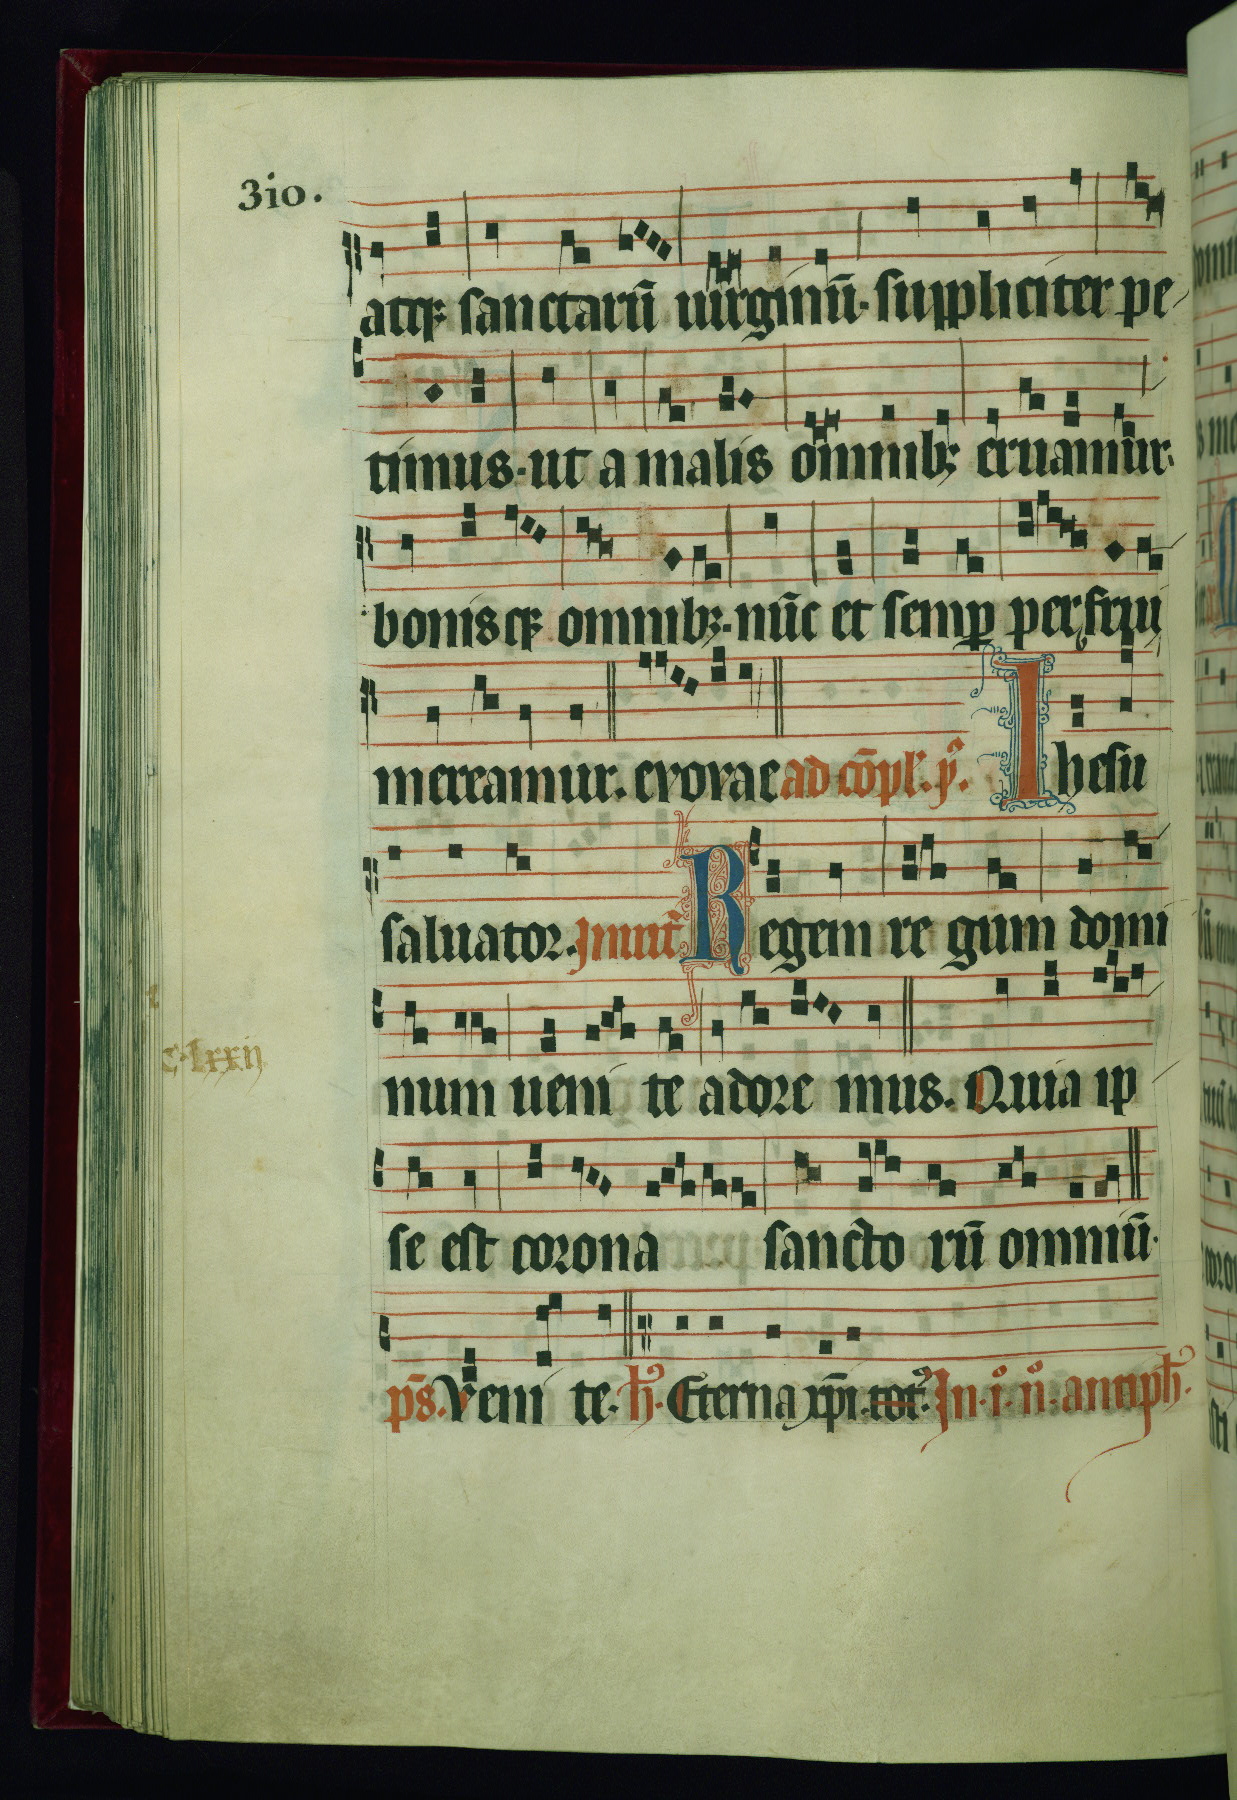 3io.
atqꝫ sanctarū uirginū. suppliciter pe
timus. ut a malis omnibꝫ eruamur.
bonisqꝫ omnibꝫ. nūc et semꝑ perfrui
mereamur. evovae ad cōpl'. ỳ. Ihesu
saluator. Inuit' Regem re gum domi
num ueni te adore mus. Quia ip
se est corona sancto rū omniū.
ps̄. Veni te. h̄. Eterna xp̄i. tot'. In. i°. n°. antiph̄.
C. lxxij